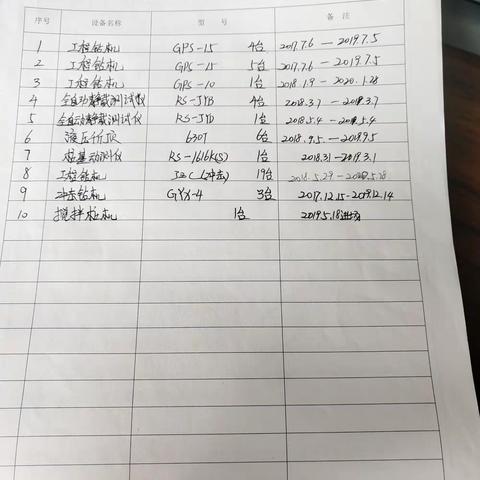 序号 设备名称 型号 备注
1 工程钻机 GPS-15 4台 2017.7.6—2019.7.5
2 工程钻机 GPS-15 5台 2017.7.6—2019.7.5
3 工程钻机 GPS-10 1台 2018.1.9—2020.1.28
4 全自动静载测试仪 RS-JYB 4台 2018.3.7—2019.3.7
5 全自动静载测试仪 RS-JYB 1台 2018.5.4—2019.5.4
6 液压千斤顶 630T 6台 2018.9.5—2019.9.5
7 桩基动测仪 RS-1616K(S) 1台 2018.3.1—2019.3.1
8 工程钻机 19台 2018.5.29—2020.5.28
9 冲击钻机 GYX-4 3台 2017.12.15-2019.12.14
10 搅拌桩机 1台 2019.5.18进场